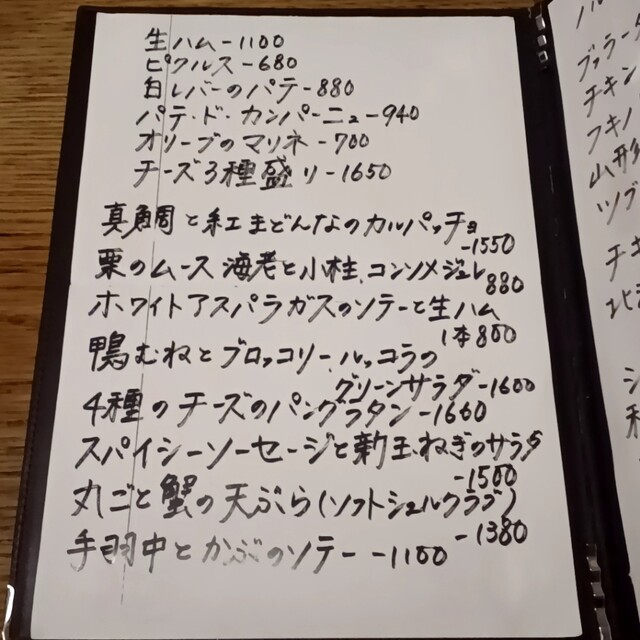 生ハム-1100
ピクルス-680
白レバーのパテ-880
パテ・ド・カンパーニュ-940
オリーブのマリネ-700
チーズ3種盛り-1650
真鯛と紅まどんなのカルパッチョ
-1550
栗のムース 海老と小柱、コンソメジュレ
880
ホワイトアスパラガスのソテーと生ハム
1本800
鴨むねとブロッコリー、ルッコラの
グリーンサラダ-1600
4種のチーズのパングラタン-1600
スパイシーソーセージと新玉ねぎのサラダ
-1500
丸ごと蟹の天ぷら(ソフトシェルクラブ)
-1380
手羽中とかぶのソテー-1100
チキン
フキノ
山形
ツブ
チキ